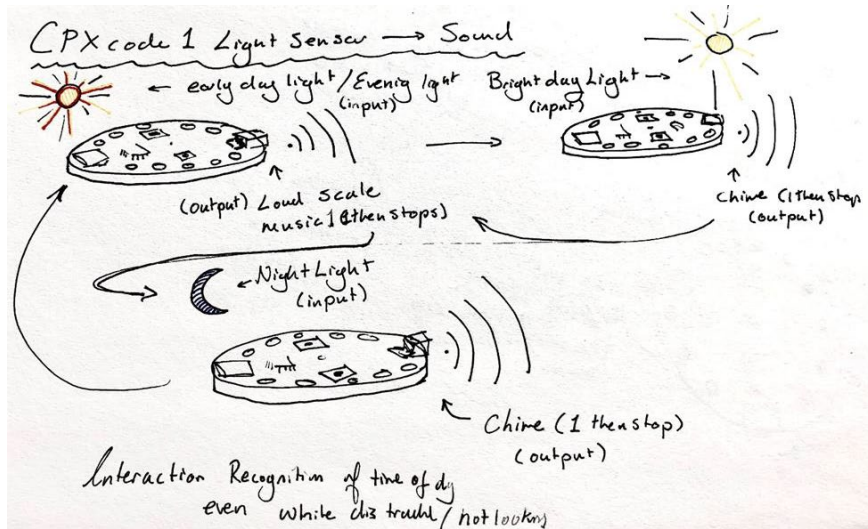 CPX code 1 Light Sensor → Sound
← early day light / Evenig light
(input)
Bright day Light →
(input)
(output) Loud Scale
music 1 (1 then stops)
Chime (1 then stop
(output)
← Night Light
(input)
Chime (1 then stop)
(output)
Interaction Recognition of time of dy
even while / not lookng